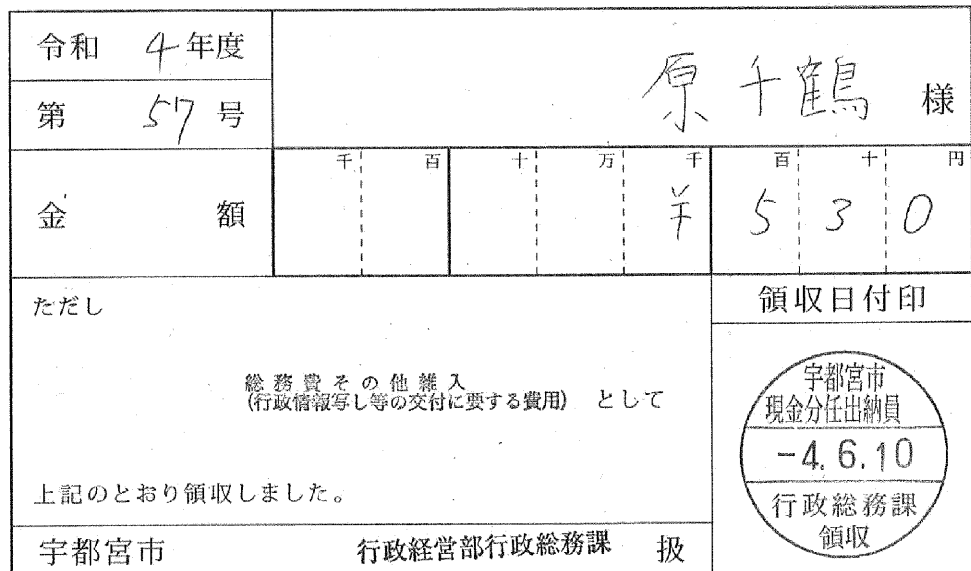 令和 4年度
第 57 号
原千鶴 様
金 額
千 百 十 万 千 百 十 円
¥ 5 3 0
ただし
総務費その他雑入
(行政情報写し等の交付に要する費用) として
上記のとおり領収しました。
宇都宮市 行政経営部行政総務課 扱
領収日付印
宇都宮市
現金分任出納員
-4.6.10
行政総務課
領収